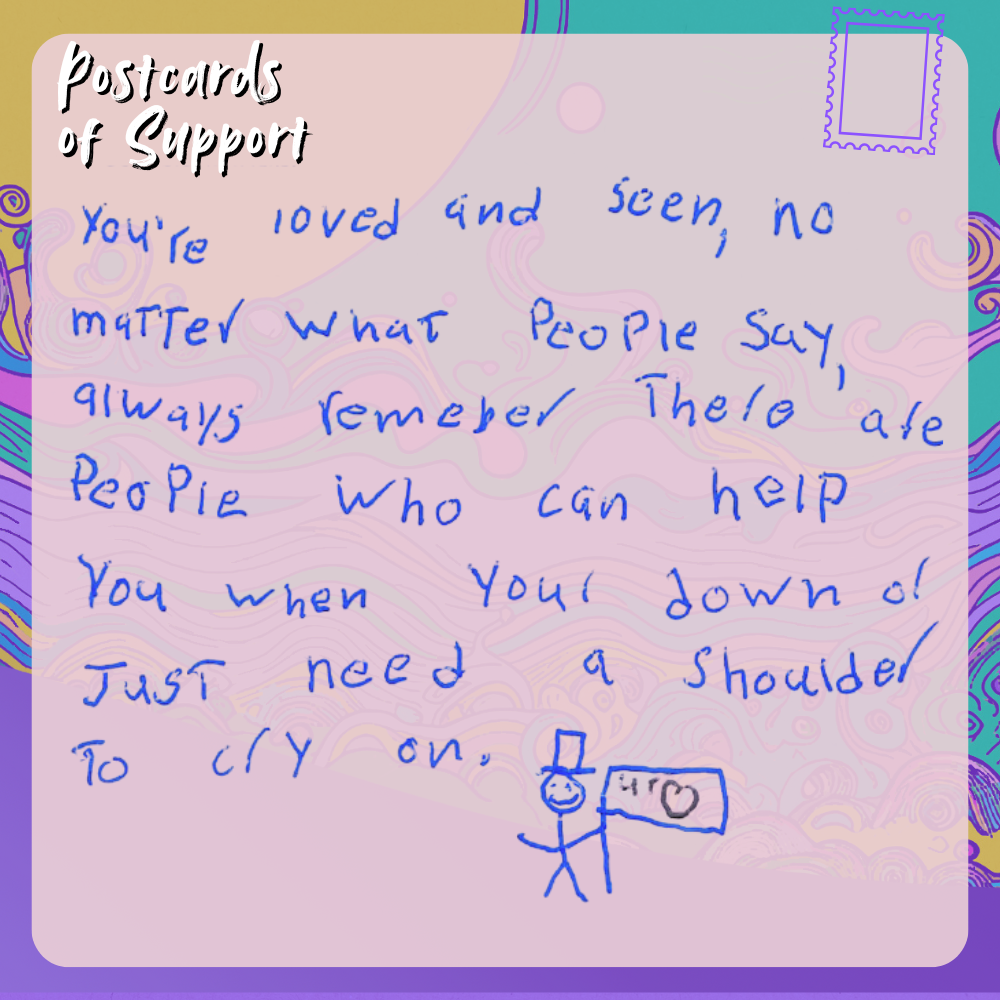 Postcards
of Support
You're loved and seen, no
matter what People Say,
always remeber There are
People who can help
You when your down or
Just need a shoulder
To cry on.
ur